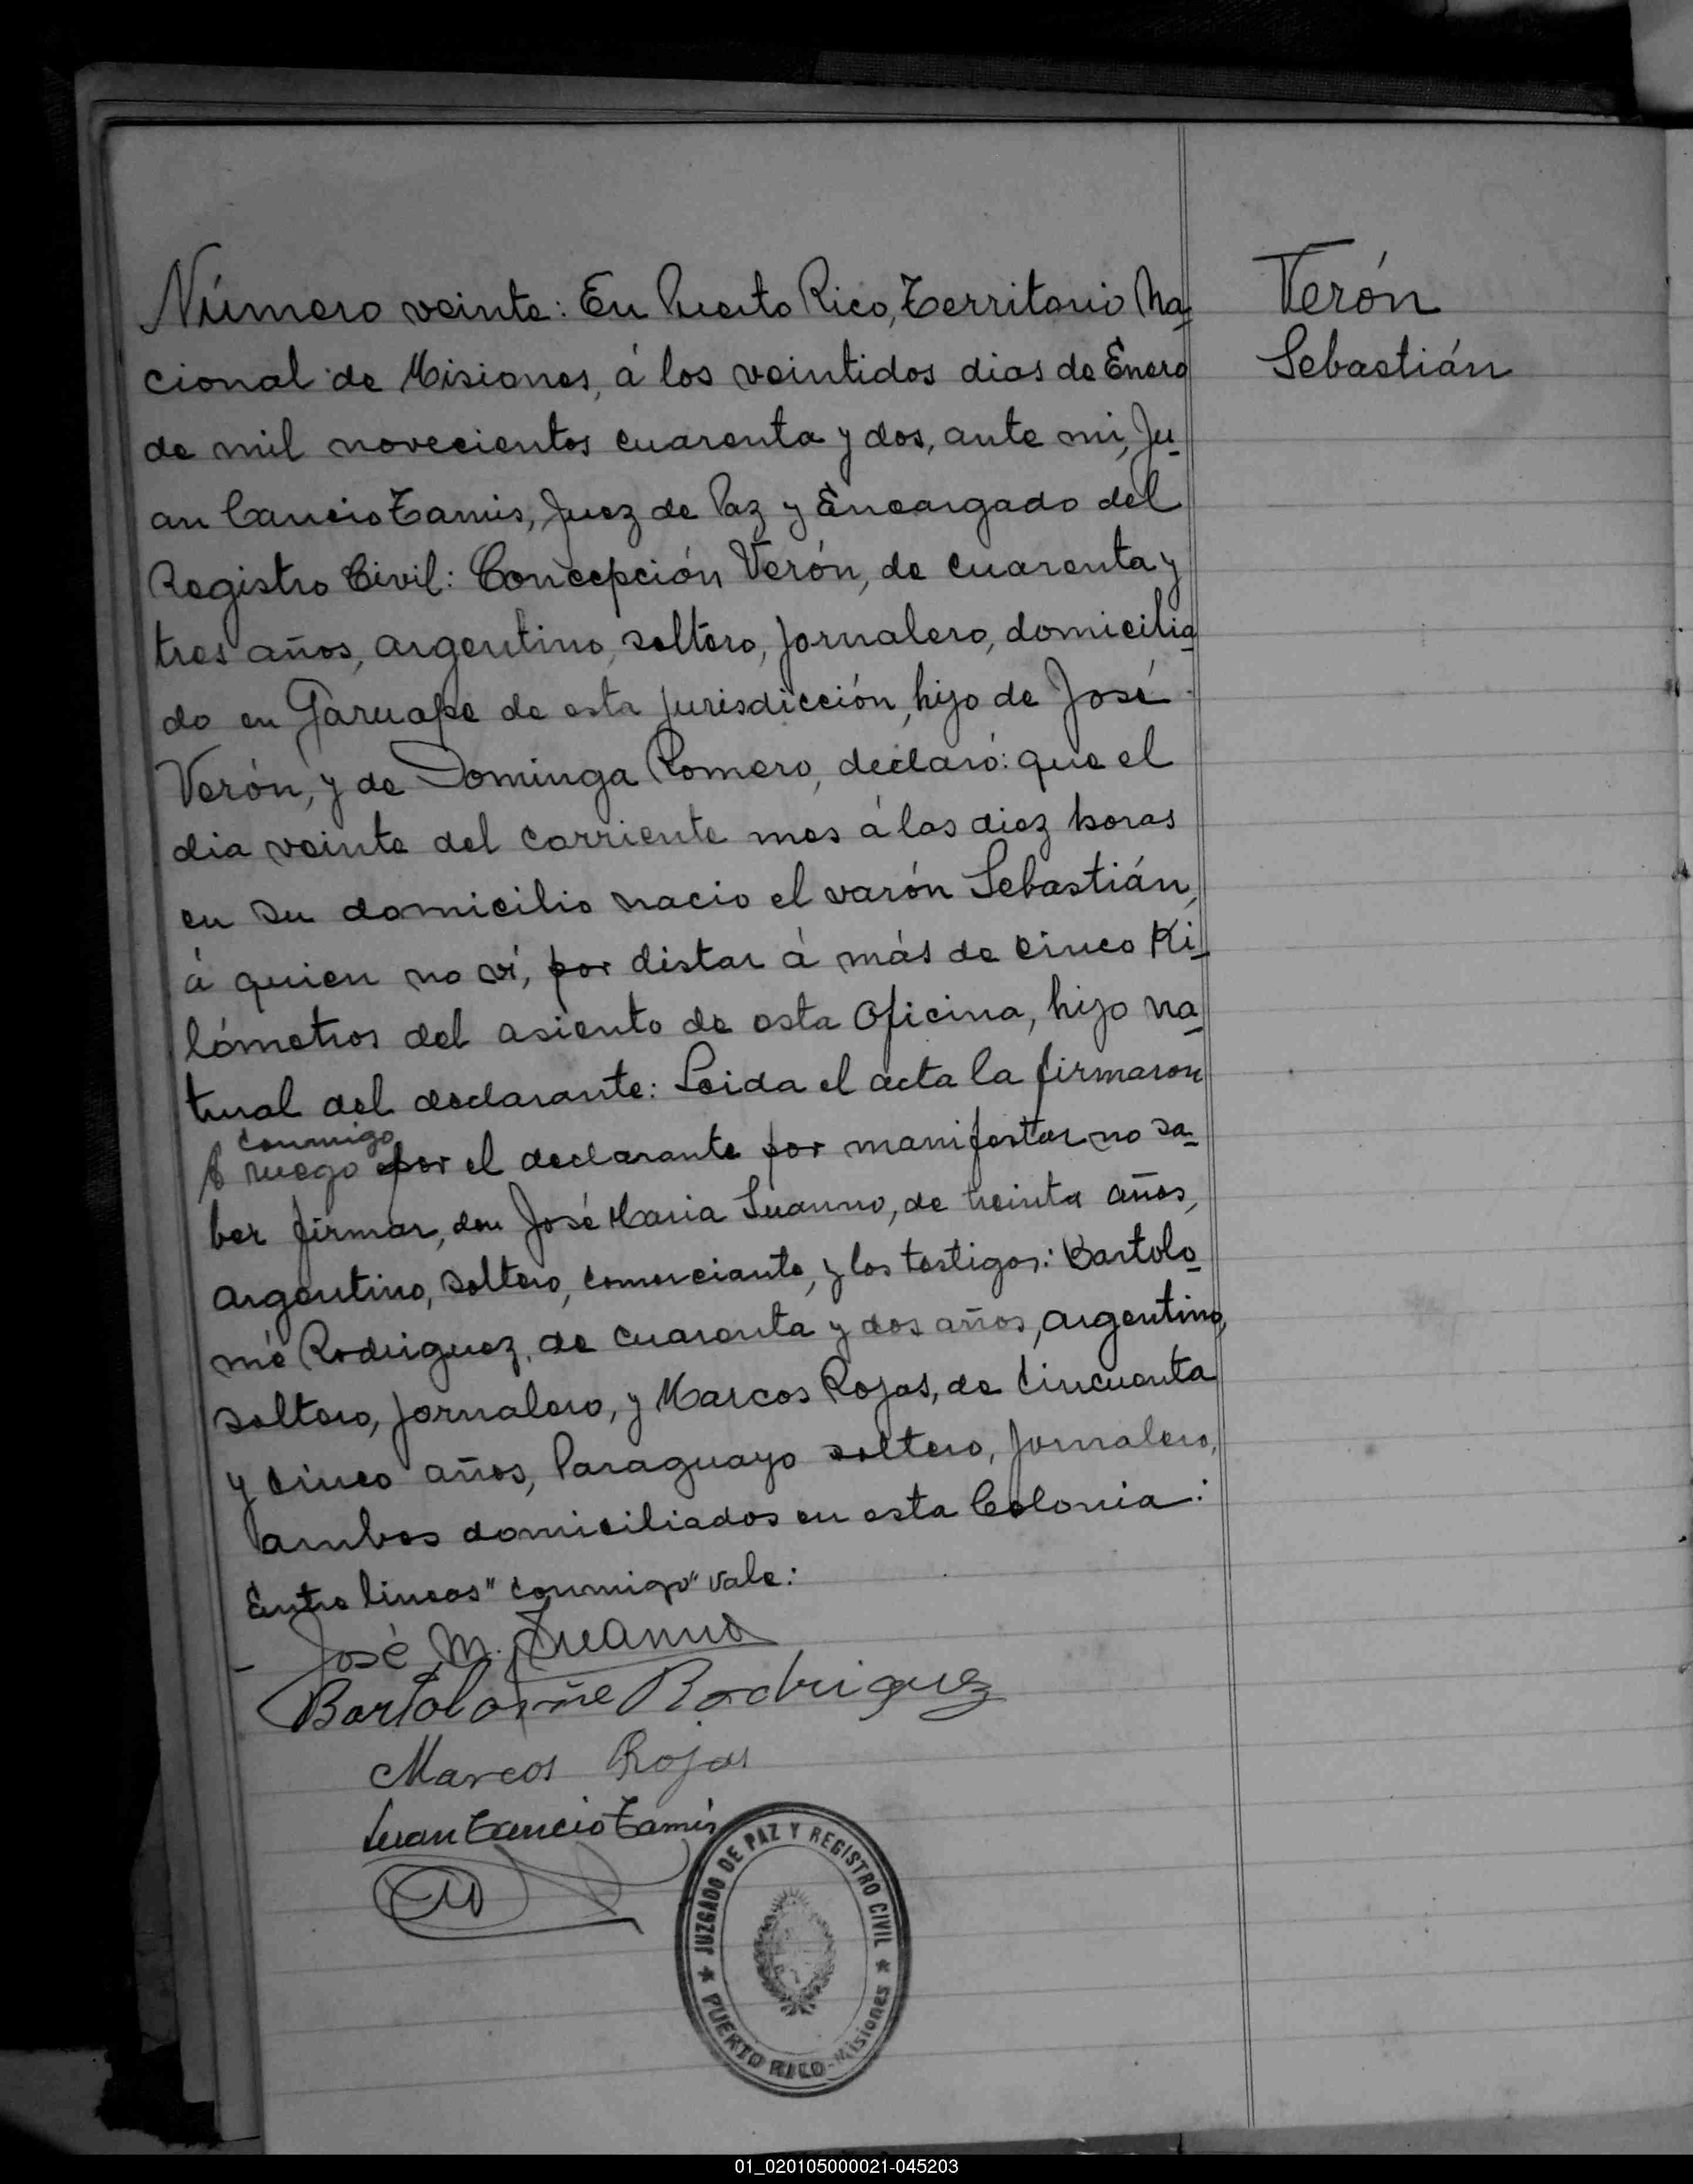 Número veinte: En Puerto Rico, Territorio Na-
cional de Misiones, á los veintidos dias de Enero
de mil novecientos cuarenta y dos, ante mi, Ju-
an Cancio Tamis, Juez de Paz y Encargado del
Registro Civil: Concepción Verón, de cuarenta y
tres años, argentino, soltero, jornalero, domicilia-
do en Garuape de esta jurisdicción, hijo de José
Verón, y de Dominga Romero, declaró: que el
dia veinte del corriente mes á las diez horas
en su domicilio nacio el varón Sebastián,
á quien no ví, por distar á más de cinco Ki-
lómetros del asiento de esta Oficina, hijo na-
tural del declarante: Leida el acta la firmaron
conmigo
á ruego por el declarante por manifestar no sa-
ber firmar, don José Maria Luanno, de treinta años,
argentino, soltero, comerciante, y los testigos: Bartolo-
mé Rodriguez, de cuarenta y dos años, argentino,
soltero, jornalero, y Marcos Rojas, de cincuenta
y cinco años, Paraguayo soltero, jornalero,
ambos domiciliados en esta Colonia:
Entre lineas "conmigo" vale:
José M. Luanno
Bartolome Rodriguez
Marcos Rojas
Juan Cancio Tamis
JUZGADO DE PAZ Y REGISTRO CIVIL
PUERTO RICO - Misiones
Verón
Sebastián
01_020105000021-045203